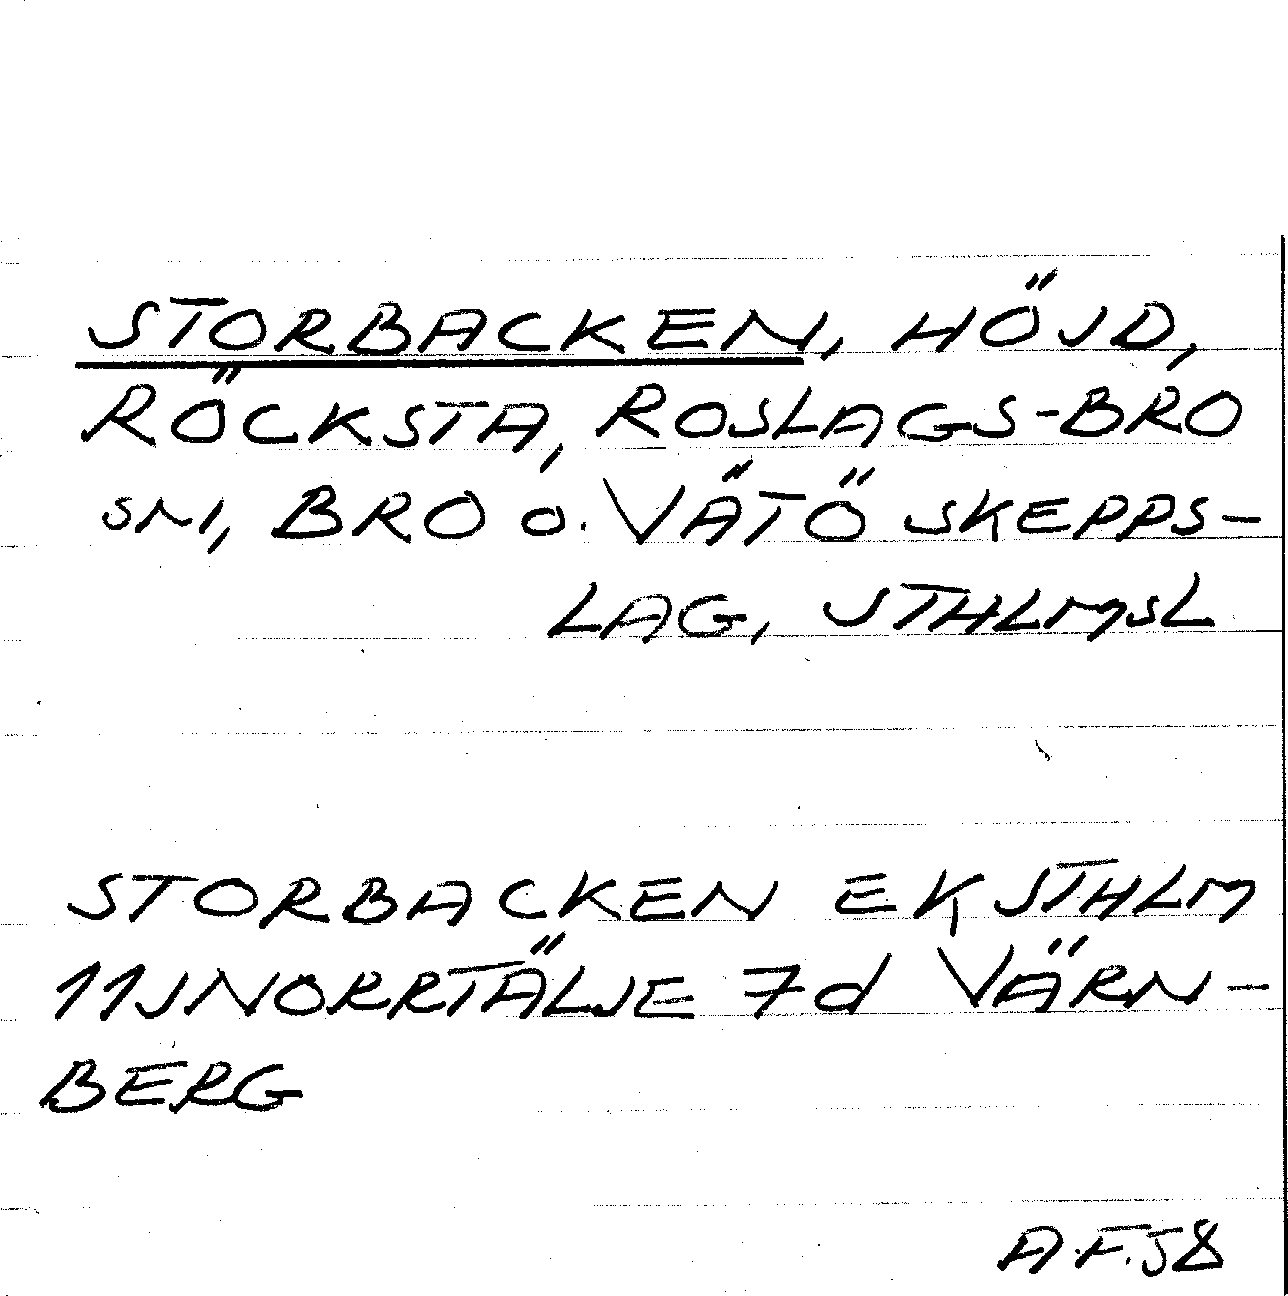 STORBACKEN, HÖJD,
RÖCKSTA, ROSLAGS-BRO
SN, BRO O. VÄTÖ SKEPPS-
LAG, STHLMSL
STORBACKEN EK STHLM
11J NORRTÄLJE 7d VÄRN-
BERG
A.F.58